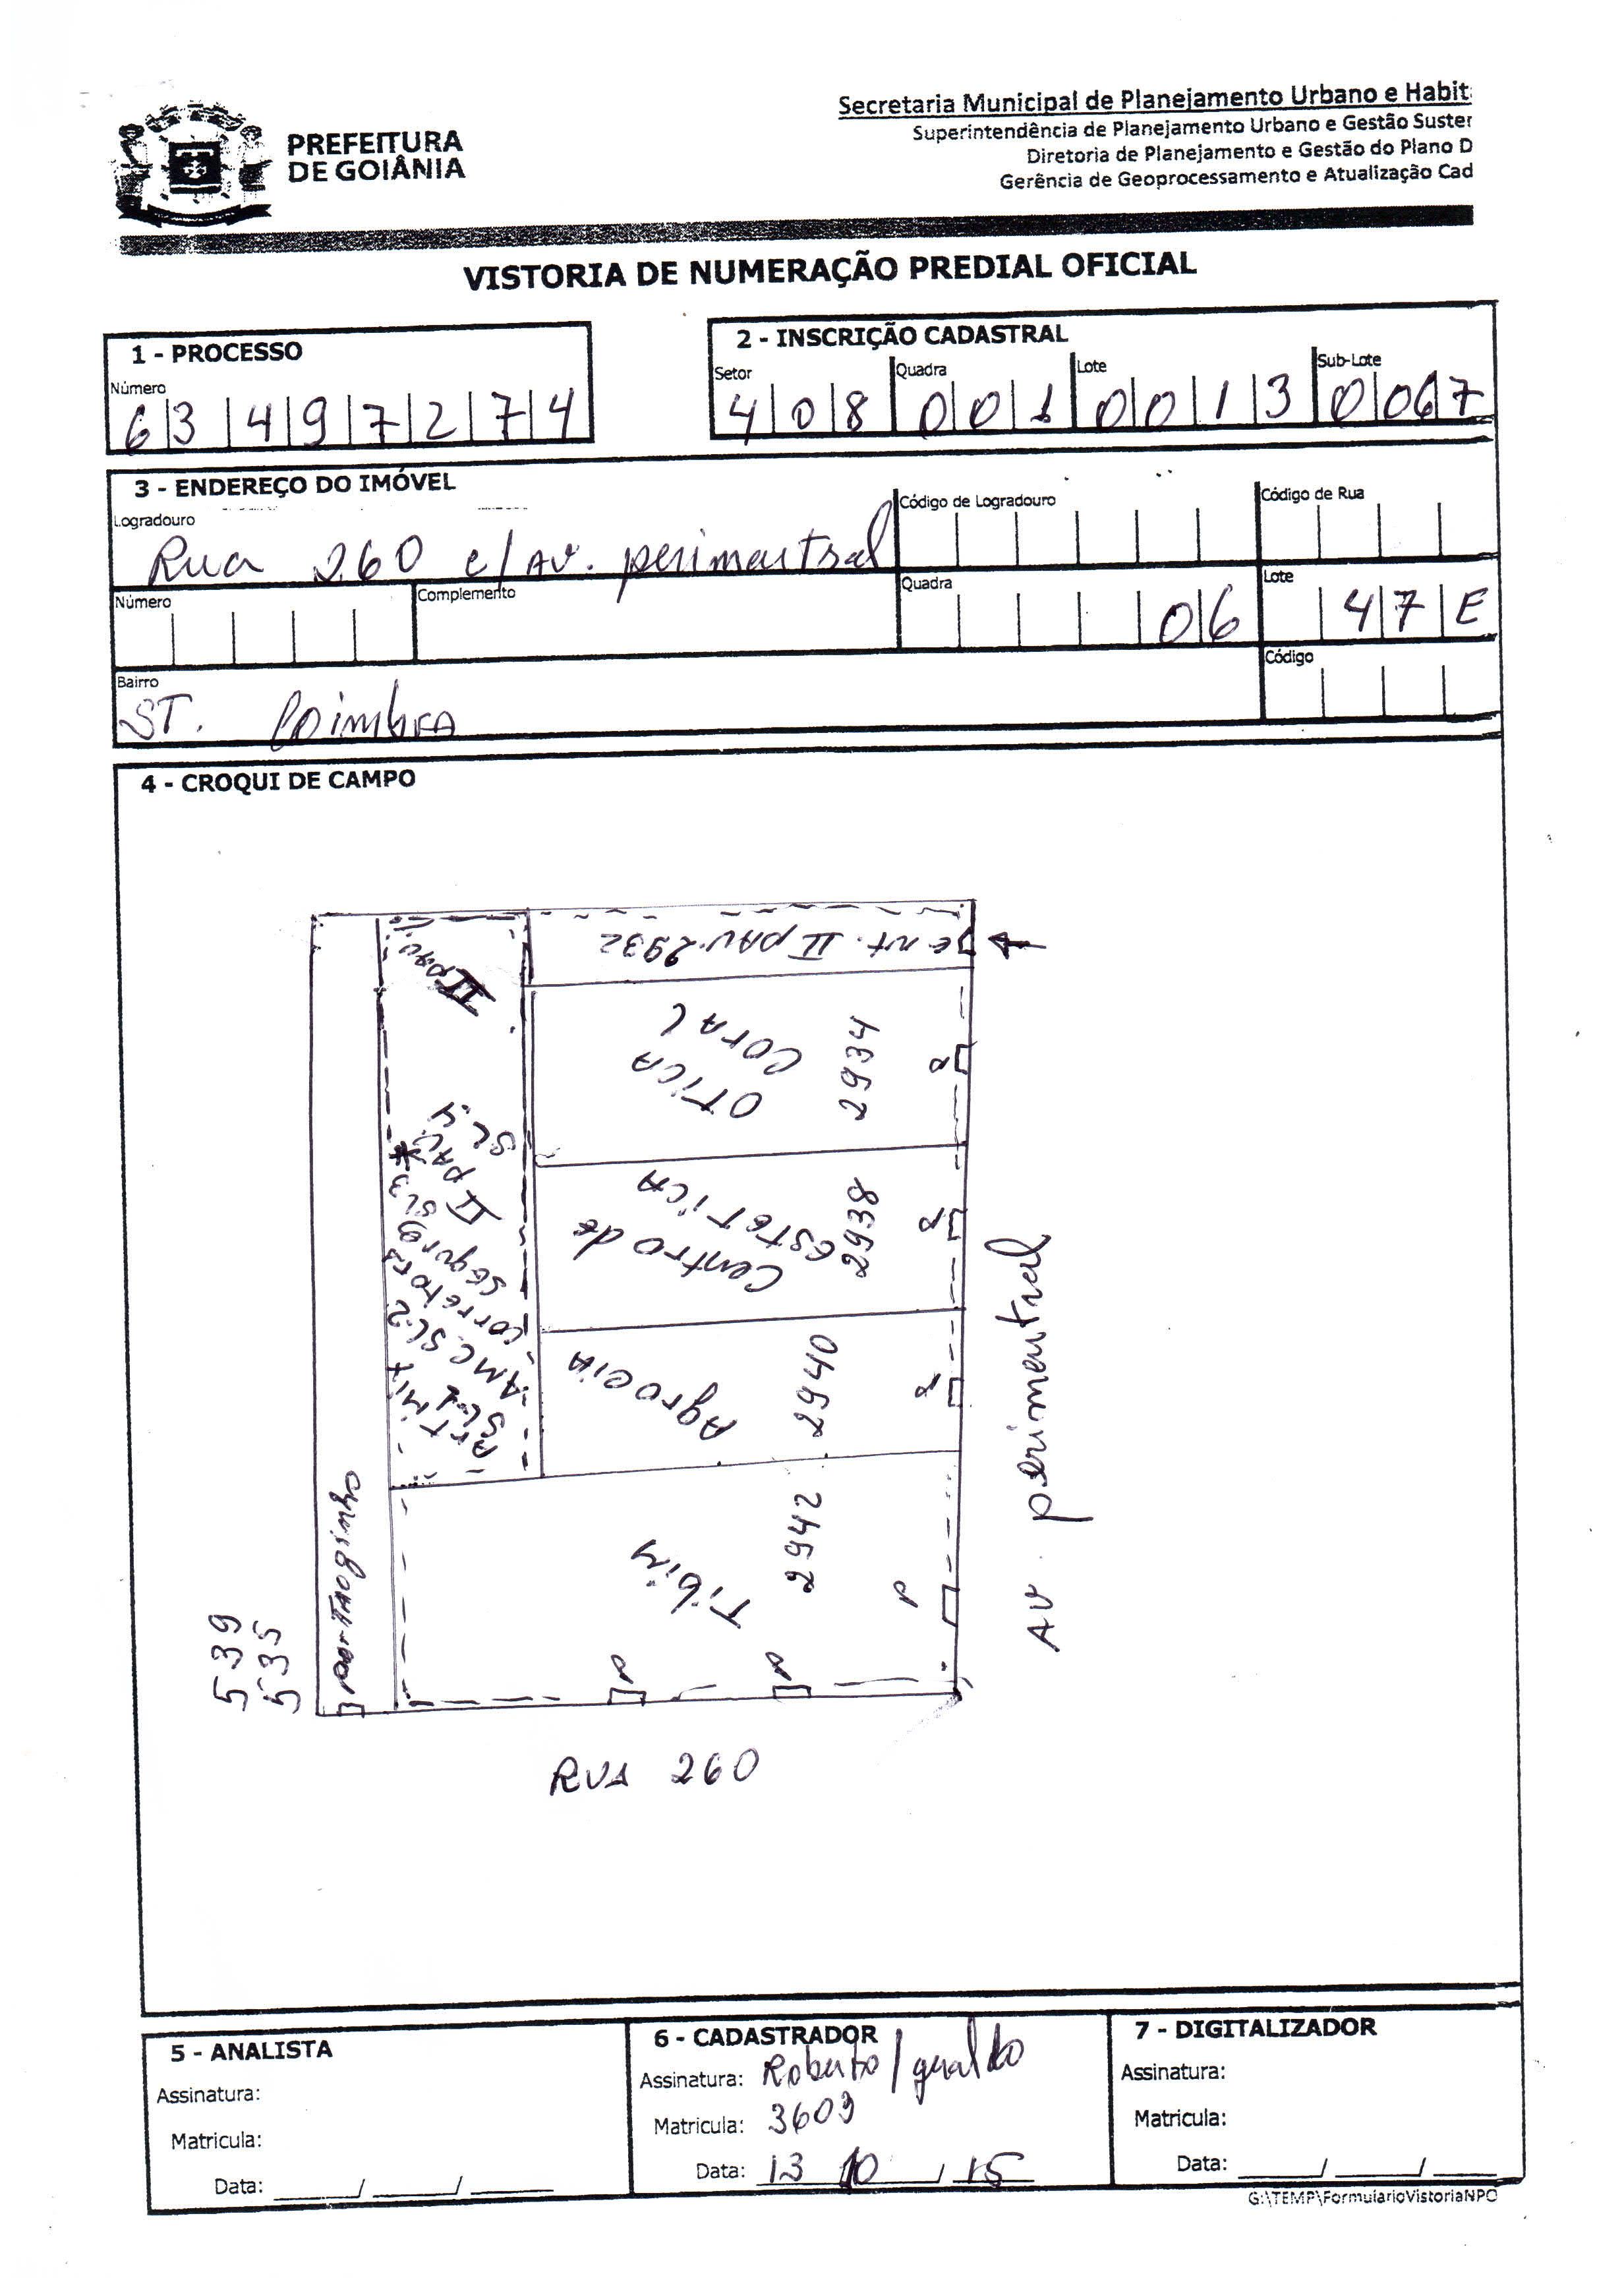 PREFEITURA
DE GOIÂNIA
Secretaria Municipal de Planejamento Urbano e Habit
Superintendência de Planejamento Urbano e Gestão Suster
Diretoria de Planejamento e Gestão do Plano D
Gerência de Geoprocessamento e Atualização Cad
VISTORIA DE NUMERAÇÃO PREDIAL OFICIAL
1 - PROCESSO
Número
63497274
2 - INSCRIÇÃO CADASTRAL
Setor Quadra Lote Sub-Lote
408 001 0013 0067
3 - ENDEREÇO DO IMÓVEL
Logradouro
Rua 260 c/ Av. perimentral
Código de Logradouro
Código de Rua
Número
Complemento
Quadra
06
Lote
47E
Bairro
ST. Coimbra
Código
4 - CROQUI DE CAMPO
ent. II pav. 2932
II pav
OTICA
CORAL
2934
Centro de
ESTETICA
2938
Agrocia
2940
Tibim
2942
II PAV
SL.4
SL3
Corretora
Seguros
AMC. SL.2
ART MIX
SL.1
539
535
Av perimentral
RUA 260
5 - ANALISTA
Assinatura:
Matricula:
Data: ____/____/____
6 - CADASTRADOR
Assinatura: Roberto/geraldo
Matricula: 3603
Data: 13 10 / 15
7 - DIGITALIZADOR
Assinatura:
Matricula:
Data: ____/____/____
G:\TEMP\FormularioVistoriaNPO